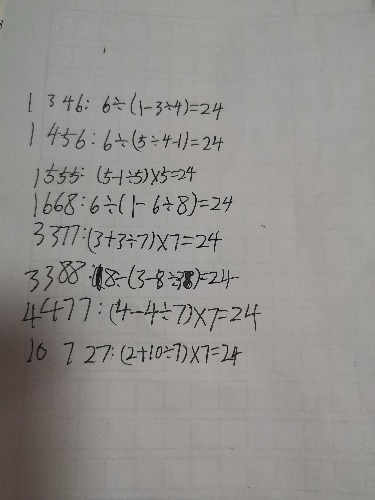 1 346: 6÷(1-3÷4)=24
1 456: 6÷(5÷4-1)=24
1555: (5-1÷5)×5=24
1668: 6÷(1-6÷8)=24
3377: (3+3÷7)×7=24
3388: 8÷(3-8÷3)=24
4477: (4-4÷7)×7=24
10 7 27: (2+10÷7)×7=24